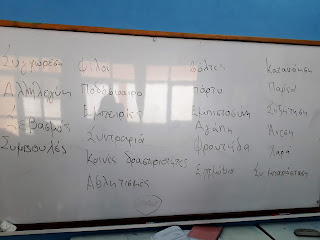 Συγχώρεση Φίλοι Βόλτες Κατανόηση
Αλληλεγγύη Ποδόσφαιρο πάρτυ Παρέα
Σεβασμός Εμπειρίες Εμπιστοσύνη Συζήτηση
Συμβουλές Συντροφιά Αγάπη Άνεση
Κοινές δραστηριότητες Φροντίδα Χαρά
Αθλητισμός Συμπαράσταση